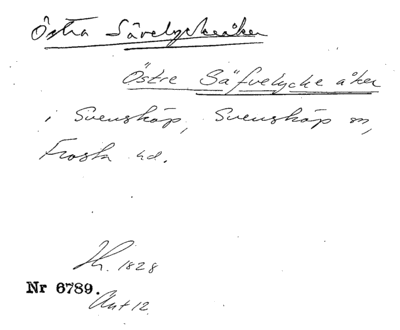 Östra Sävelyckeåker
Östre Säfvelycke åker
i Svensköp, Svensköp sn,
Frosta hd.
Jh. 1828
Nr 6789.
Akt 12